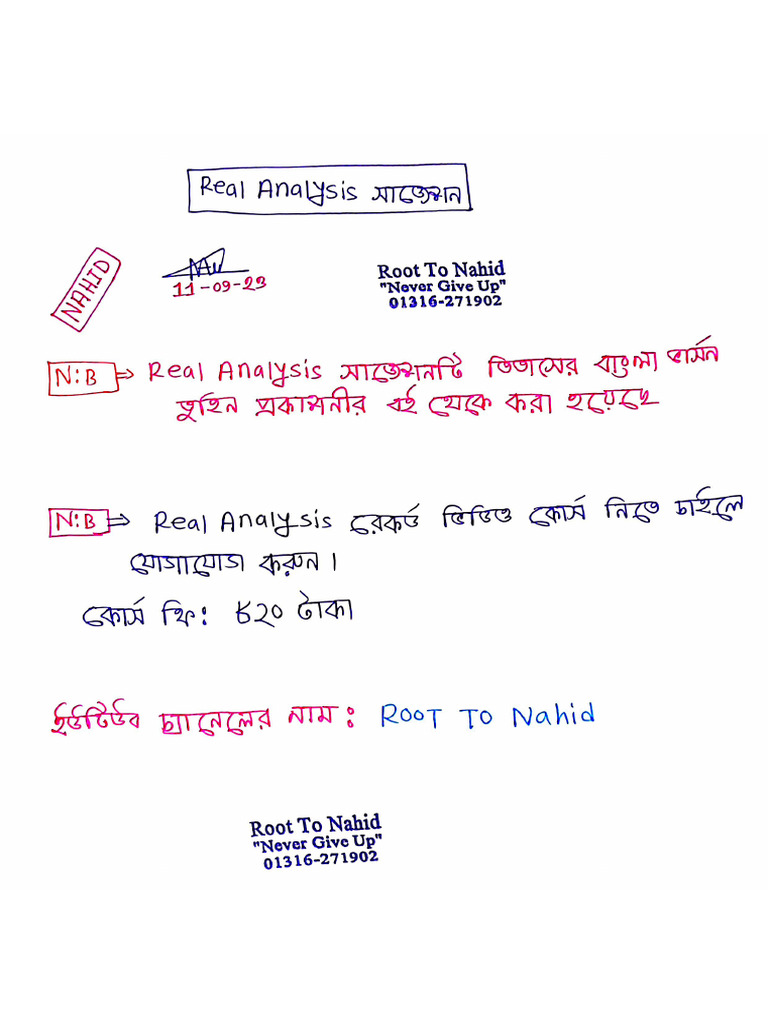 Real Analysis সাজেশন
NAHID
11-09-23
Root To Nahid
"Never Give Up"
01316-271902
N:B ⇒ Real Analysis সাজেশনটি তিতাসের বাংলা ভার্সন
তুহিন প্রকাশনীর বই থেকে করা হয়েছে
N:B ⇒ Real Analysis রেকর্ড ভিডিও কোর্স নিতে চাইলে
যোগাযোগ করুন।
কোর্স ফি: ৪২০ টাকা
ইউটিউব চ্যানেলের নাম: ROOT TO Nahid
Root To Nahid
"Never Give Up"
01316-271902